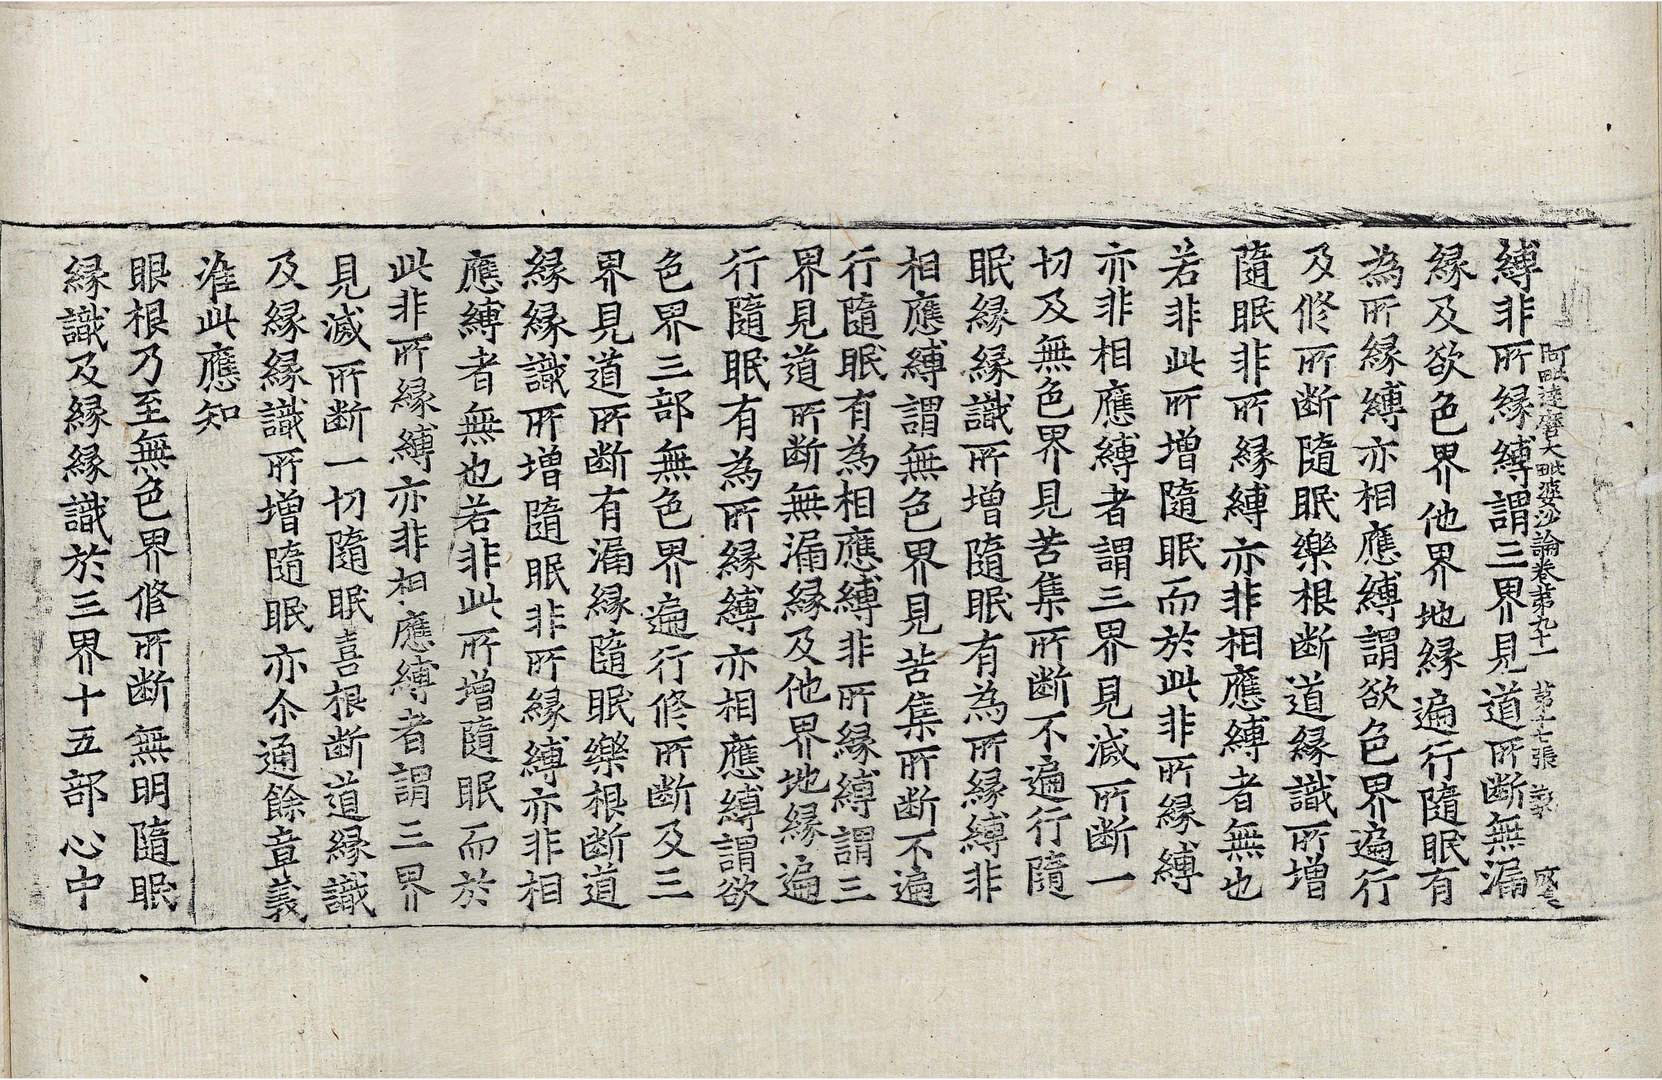 阿毗達磨大毗婆沙論卷第九十一 第十七張
縛非所緣縛謂三界見道所斷無漏
緣及欲色界他界地緣遍行隨眠有
為所緣縛亦相應縛謂欲色界遍行
及修所斷隨眠樂根斷道緣識所增
隨眠非所緣縛亦非相應縛者無也
若非此所增隨眠而於此非所緣縛
亦非相應縛者謂三界見滅所斷一
切及無色界見苦集所斷不遍行隨
眠緣緣識所增隨眠有為所緣縛非
相應縛謂無色界見苦集所斷不遍
行隨眠有為相應縛非所緣縛謂三
界見道所斷無漏緣及他界地緣遍
行隨眠有為所緣縛亦相應縛謂欲
色界三部無色界遍行修所斷及三
界見道所斷有漏緣隨眠樂根斷道
緣緣識所增隨眠非所緣縛亦非相
應縛者無也若非此所增隨眠而於
此非所緣縛亦非相應縛者謂三界
見滅所斷一切隨眠喜根斷道緣識
及緣緣識所增隨眠亦尒通餘章義
准此應知
眼根乃至無色界修所斷無明隨眠
緣識及緣緣識於三界十五部心中